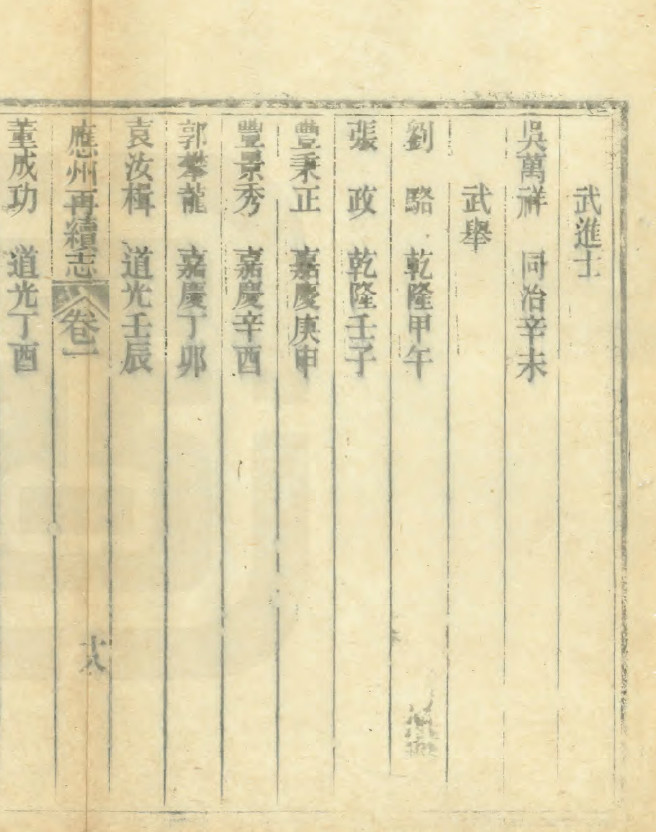 武進士
吳萬祥　同治辛未
武舉
劉　駱　乾隆甲午
張　政　乾隆壬子
豐秉正　嘉慶庚申
豐景秀　嘉慶辛酉
郭攀龍　嘉慶丁卯
袁汝楫　道光壬辰
應州再續志　卷一　十八
董成功　道光丁酉